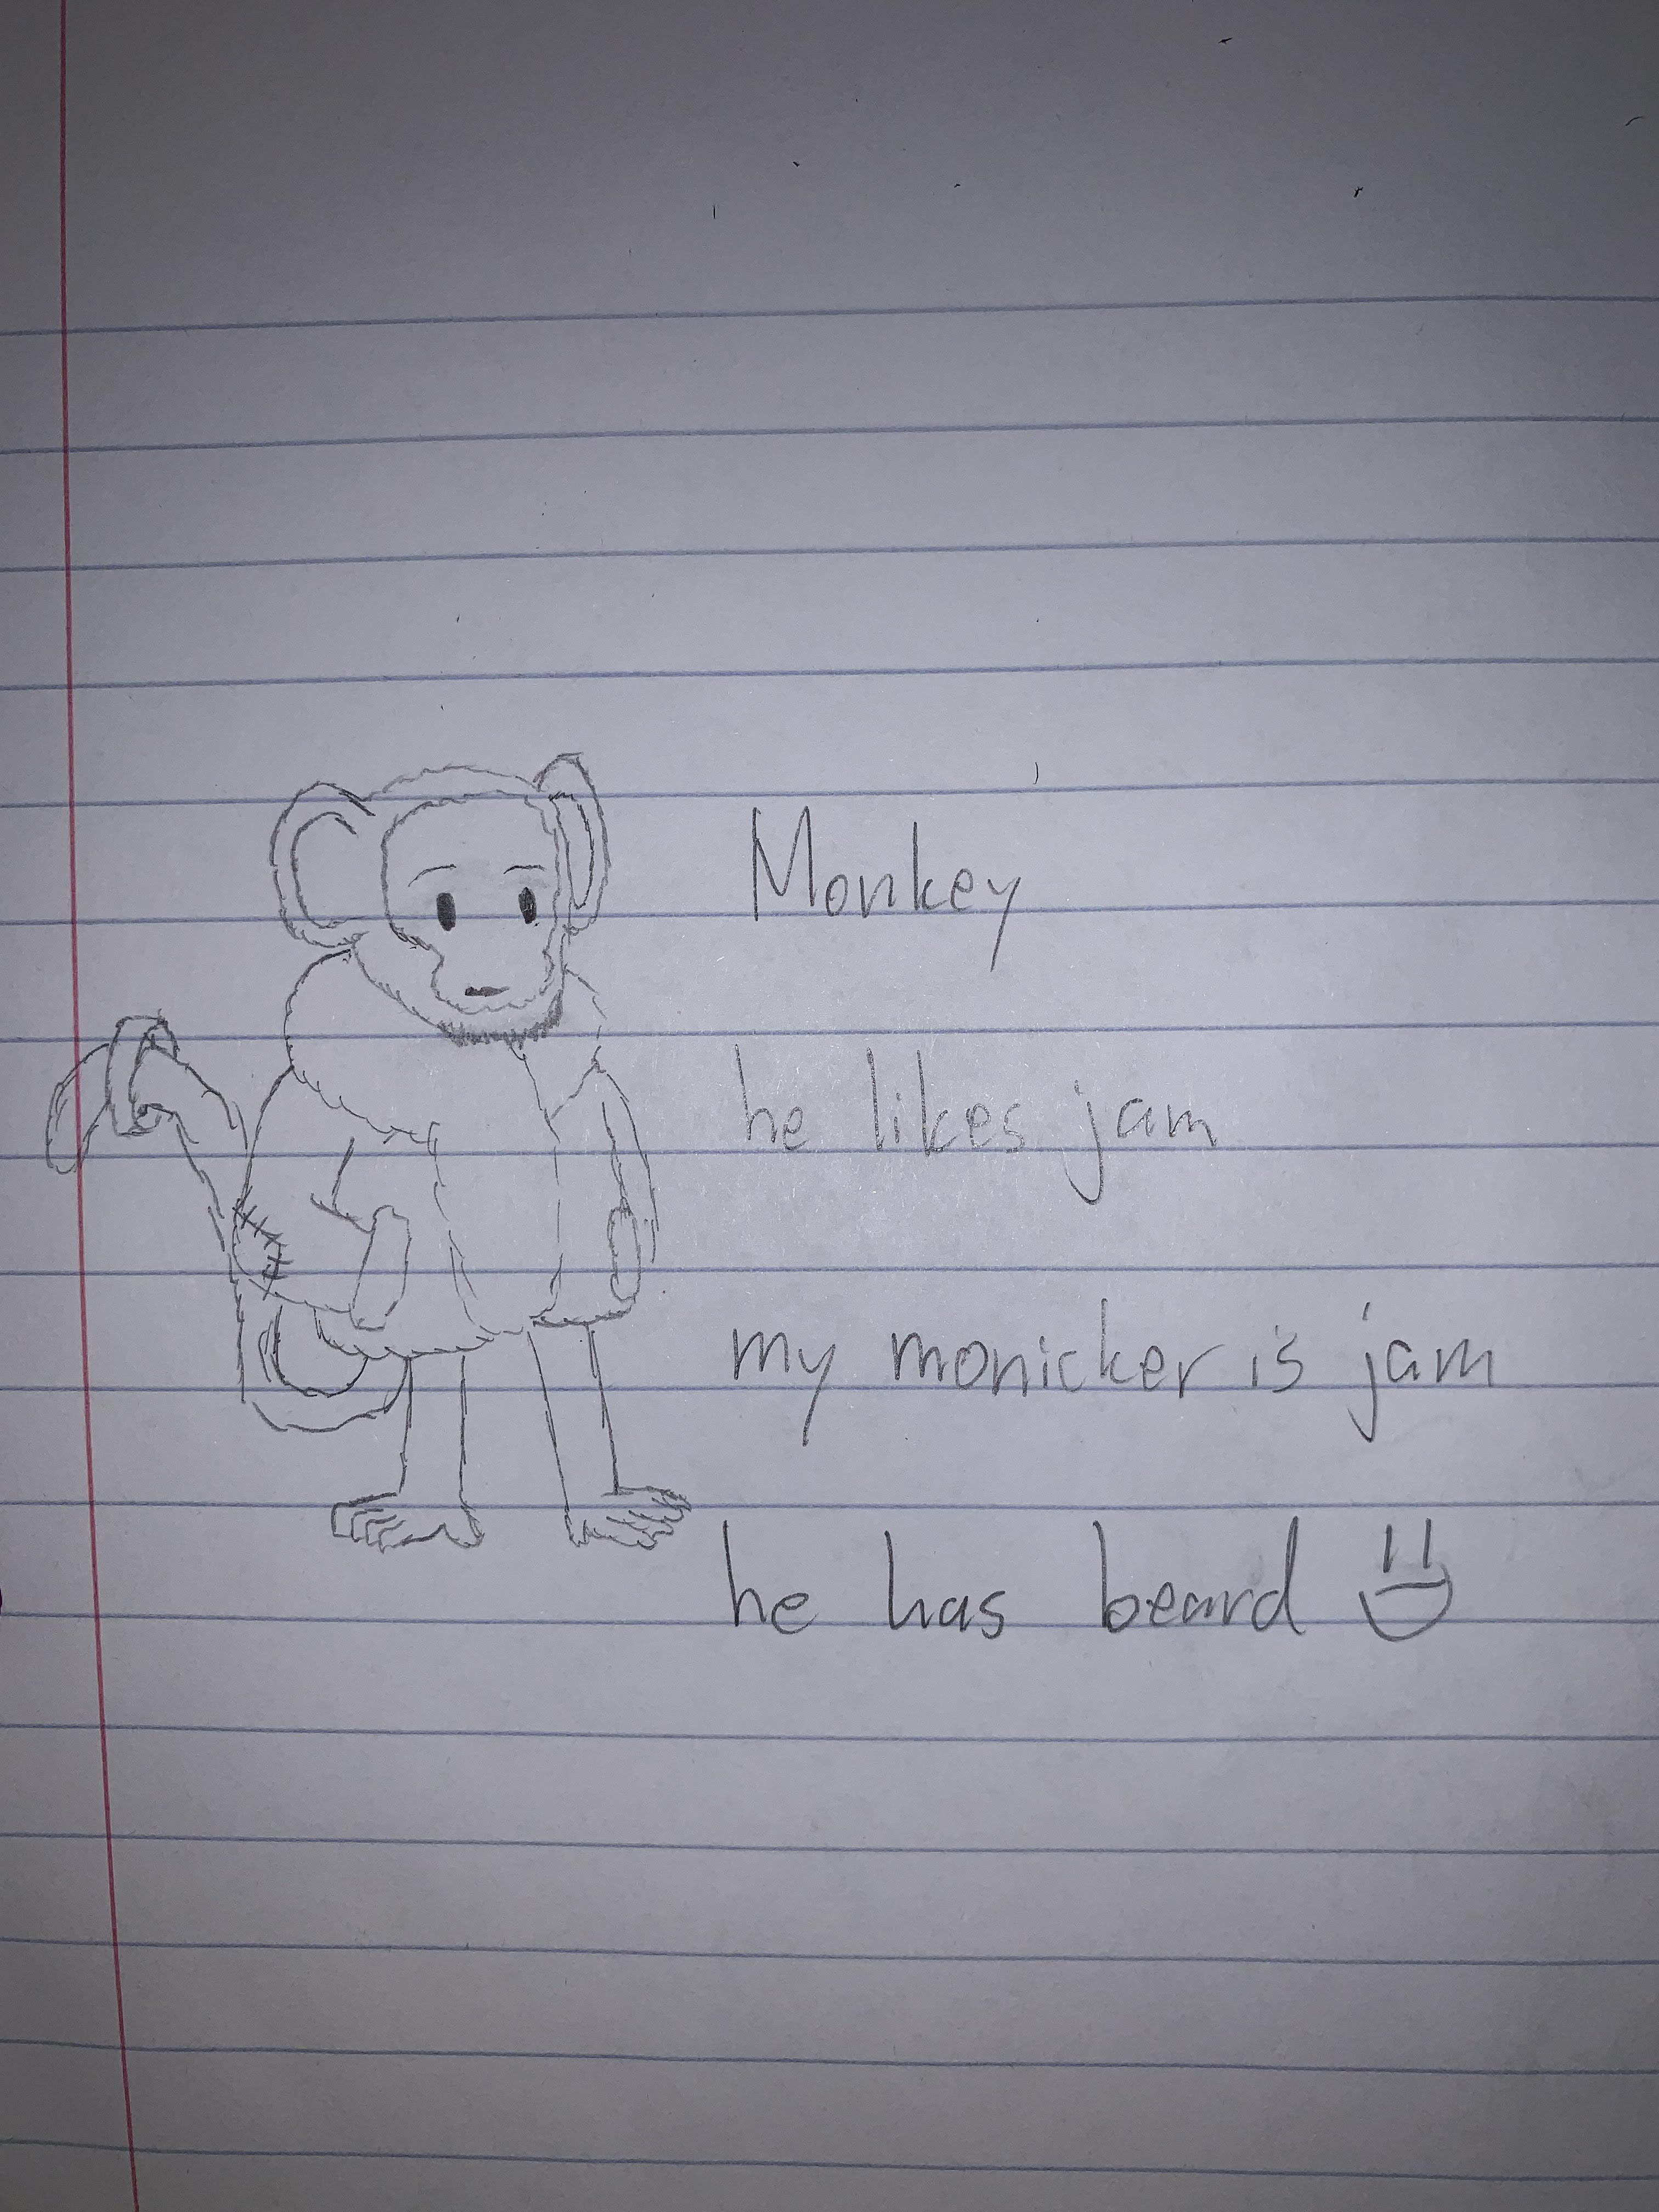 Monkey
he likes jam
my monicker is jam
he has beard